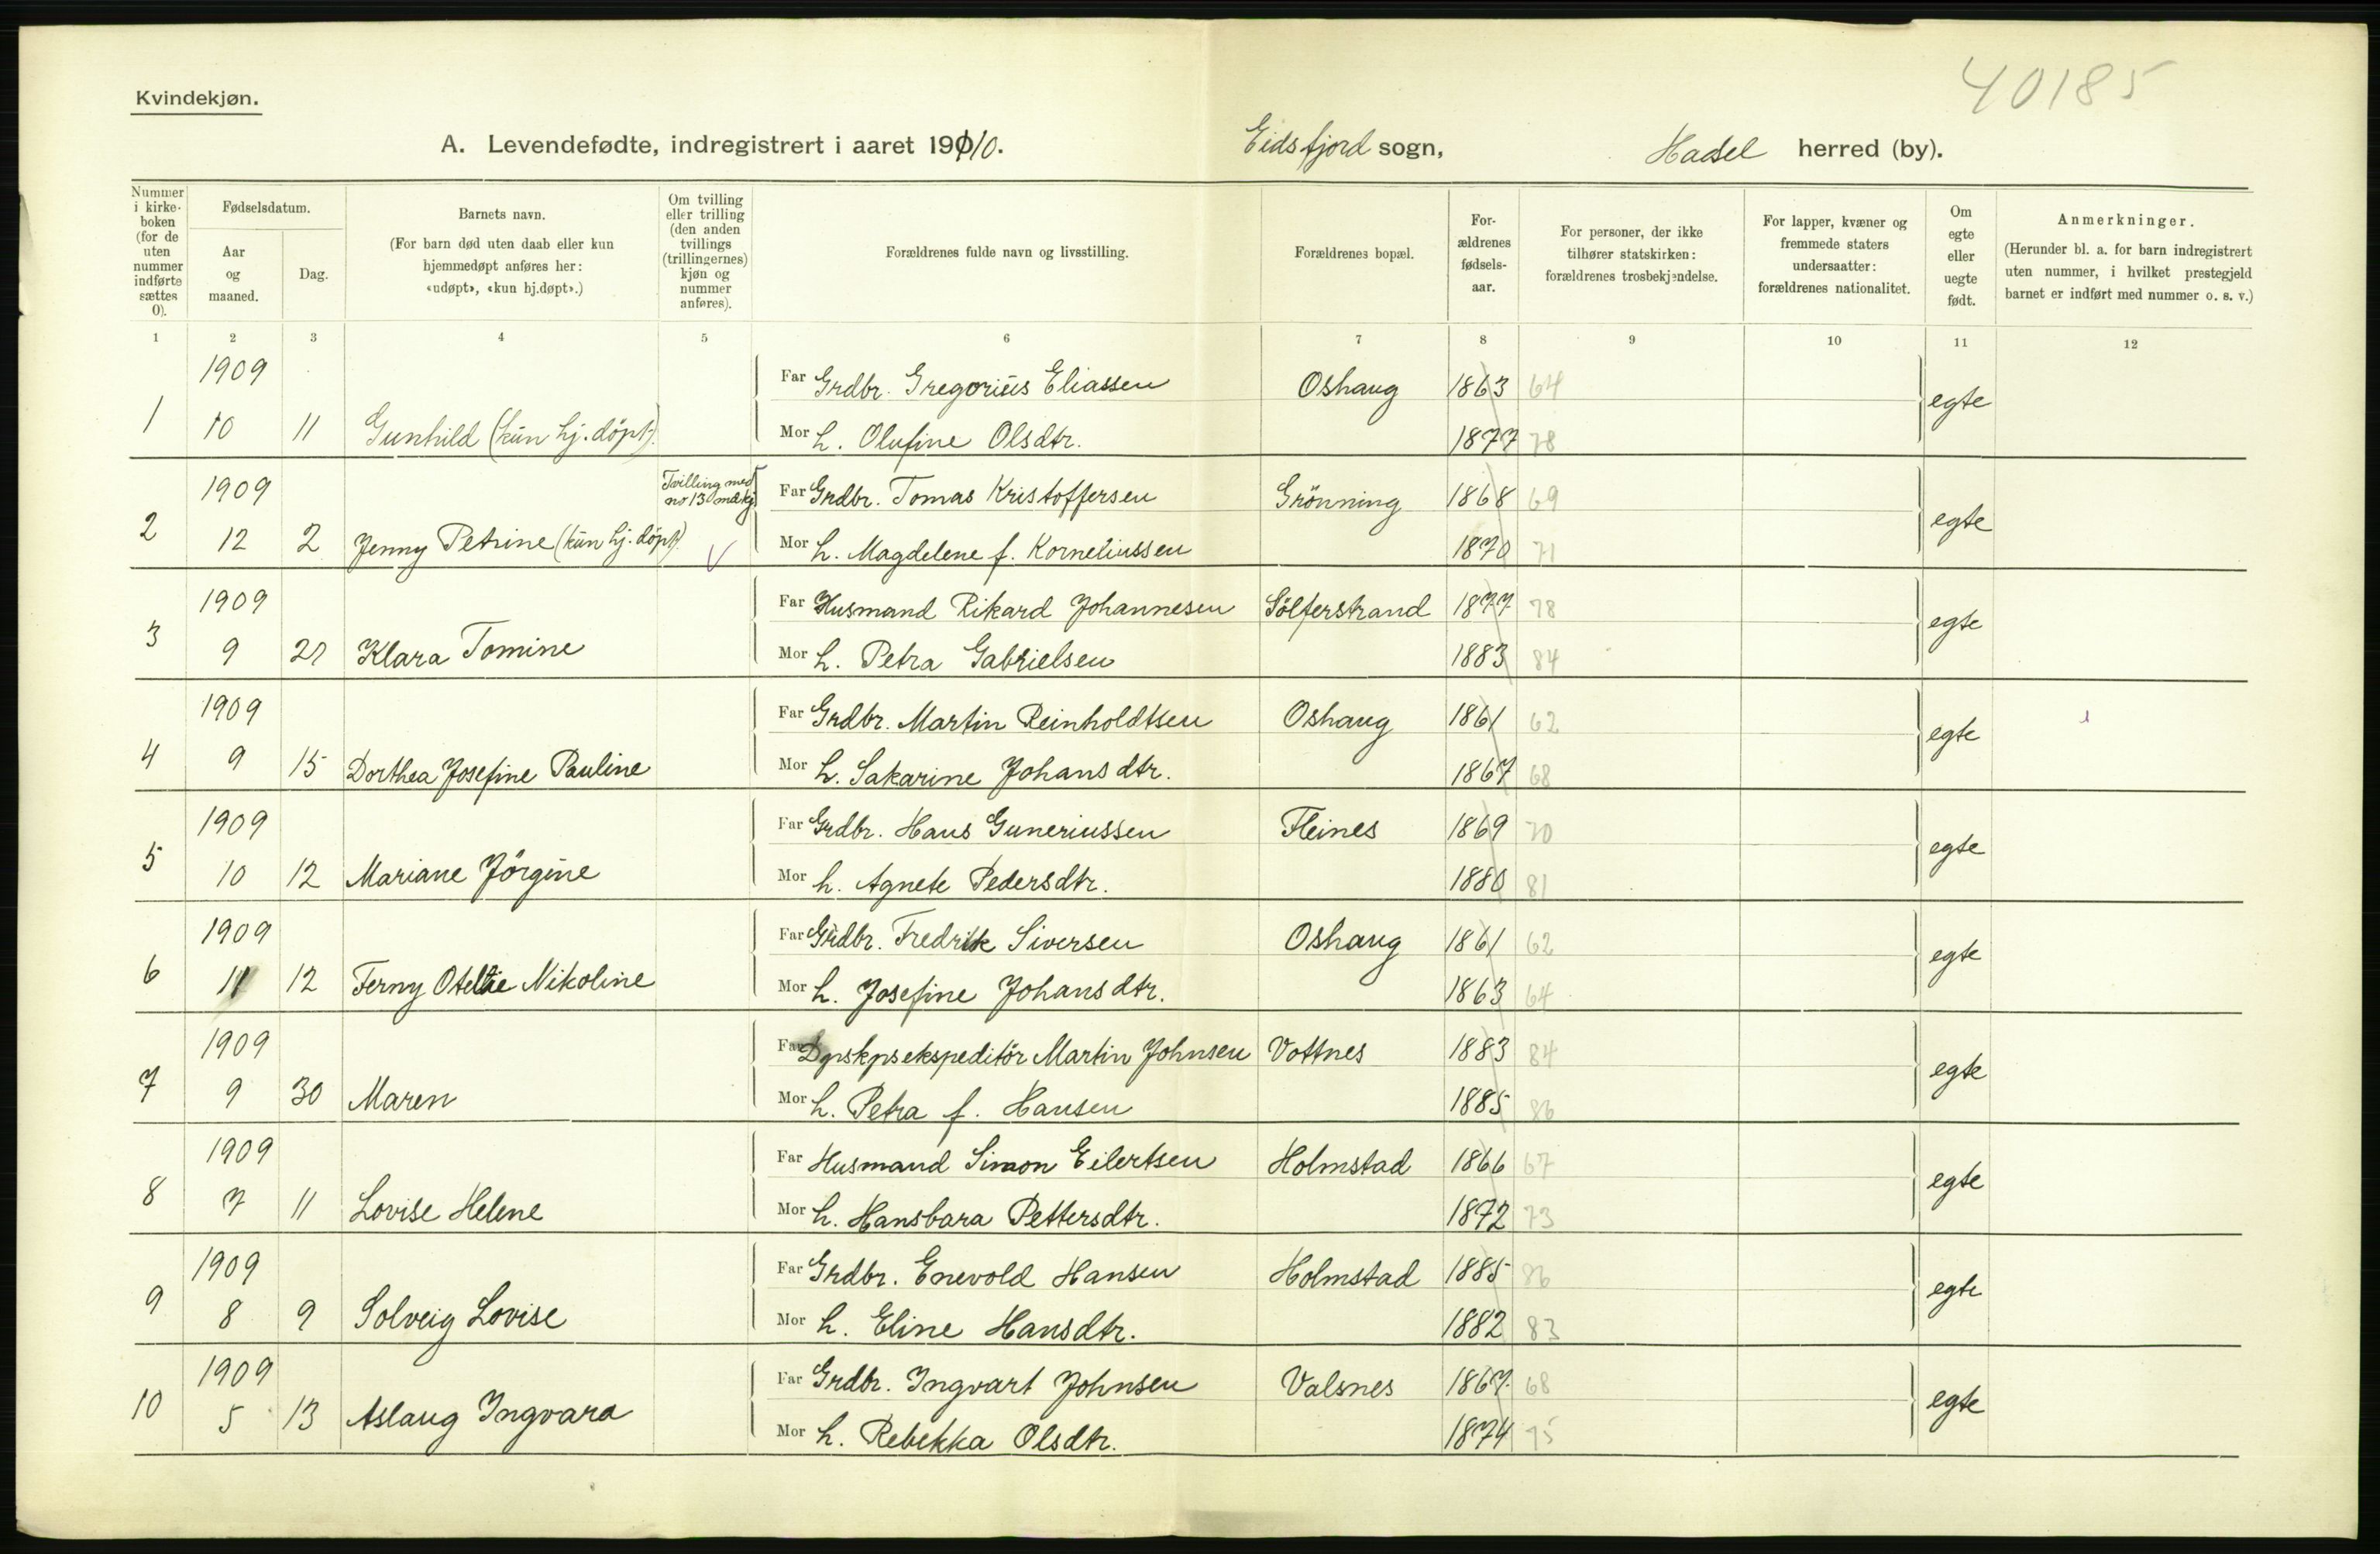 40185
Kvindekjøn.
A. Levendefødte, indregistrert i aaret 1910. Eidsfjord sogn, Hadsel herred (by).
Nummer i kirkeboken (for de uten nummer indførte sættes 0).
Fødselsdatum.
Aar og maaned.
Dag.
Barnets navn.
(For barn død uten daab eller kun hjemmedøpt anføres her: «udøpt», «kun hj.døpt».)
Om tvilling eller trilling (den anden tvillings (trillingernes) kjøn og nummer anføres).
Forældrenes fulde navn og livsstilling.
Forældrenes bopæl.
Forældrenes fødselsaar.
For personer, der ikke tilhører statskirken: forældrenes trosbekjendelse.
For lapper, kvæner og fremmede staters undersaatter: forældrenes nationalitet.
Om egte eller uegte født.
Anmerkninger.
(Herunder bl. a. for barn indregistrert uten nummer, i hvilket prestegjeld barnet er indført med nummer o. s. v.)
1 2 3 4 5 6 7 8 9 10 11 12
1909 Far Grdbr. Gregorius Eliassen Oshaug 1863 64 egte
1 10 11 Gunhild (kun hj. döpt). Mor h. Olufine Olsdtr. 1877 78
1909 Tvilling med no 13 mdkj. Far Grdbr. Tomas Kristoffersen Grönning 1868 69 egte
2 12 2 Jenny Petrine (kun hj. döpt) Mor h. Magdelene f. Korneliussen 1870 71
1909 Far Husmand Rikard Johannesen Sölferstrand 1877 78 egte
3 9 21 Klara Tomine Mor h. Petra Gabrielsen 1883 84
1909 Far Grdbr. Martin Reinholdtsen Oshaug 1861 62 egte
4 9 15 Dorthea Josefine Pauline Mor h. Sakarine Johansdtr. 1867 68
1909 Far Grdbr. Hans Guneriussen Fleines 1869 70 egte
5 10 12 Mariane Jörgine Mor h. Agnete Pedersdtr. 1880 81
1909 Far Grdbr. Fredrik Siversen Oshaug 1861 62 egte
6 11 12 Ferny Otelie Nikoline Mor h. Josefine Johansdtr. 1863 64
1909 Far Dpskpsekspeditör Martin Johnsen Vottnes 1883 84 egte
7 9 30 Maren Mor h. Petra f. Hansen 1885 86
1909 Far Husmand Simon Eilertsen Holmstad 1866 67 egte
8 7 11 Lovise Helene Mor h. Hansbara Pettersdtr. 1872 73
1909 Far Grdbr. Enevold Hansen Holmstad 1885 86 egte
9 8 9 Solveig Lovise Mor h. Eline Hansdtr. 1882 83
1909 Far Grdbr. Ingvart Johnsen Valsnes 1867 68 egte
10 5 13 Aslaug Ingvara Mor h. Rebekka Olsdtr. 1874 75